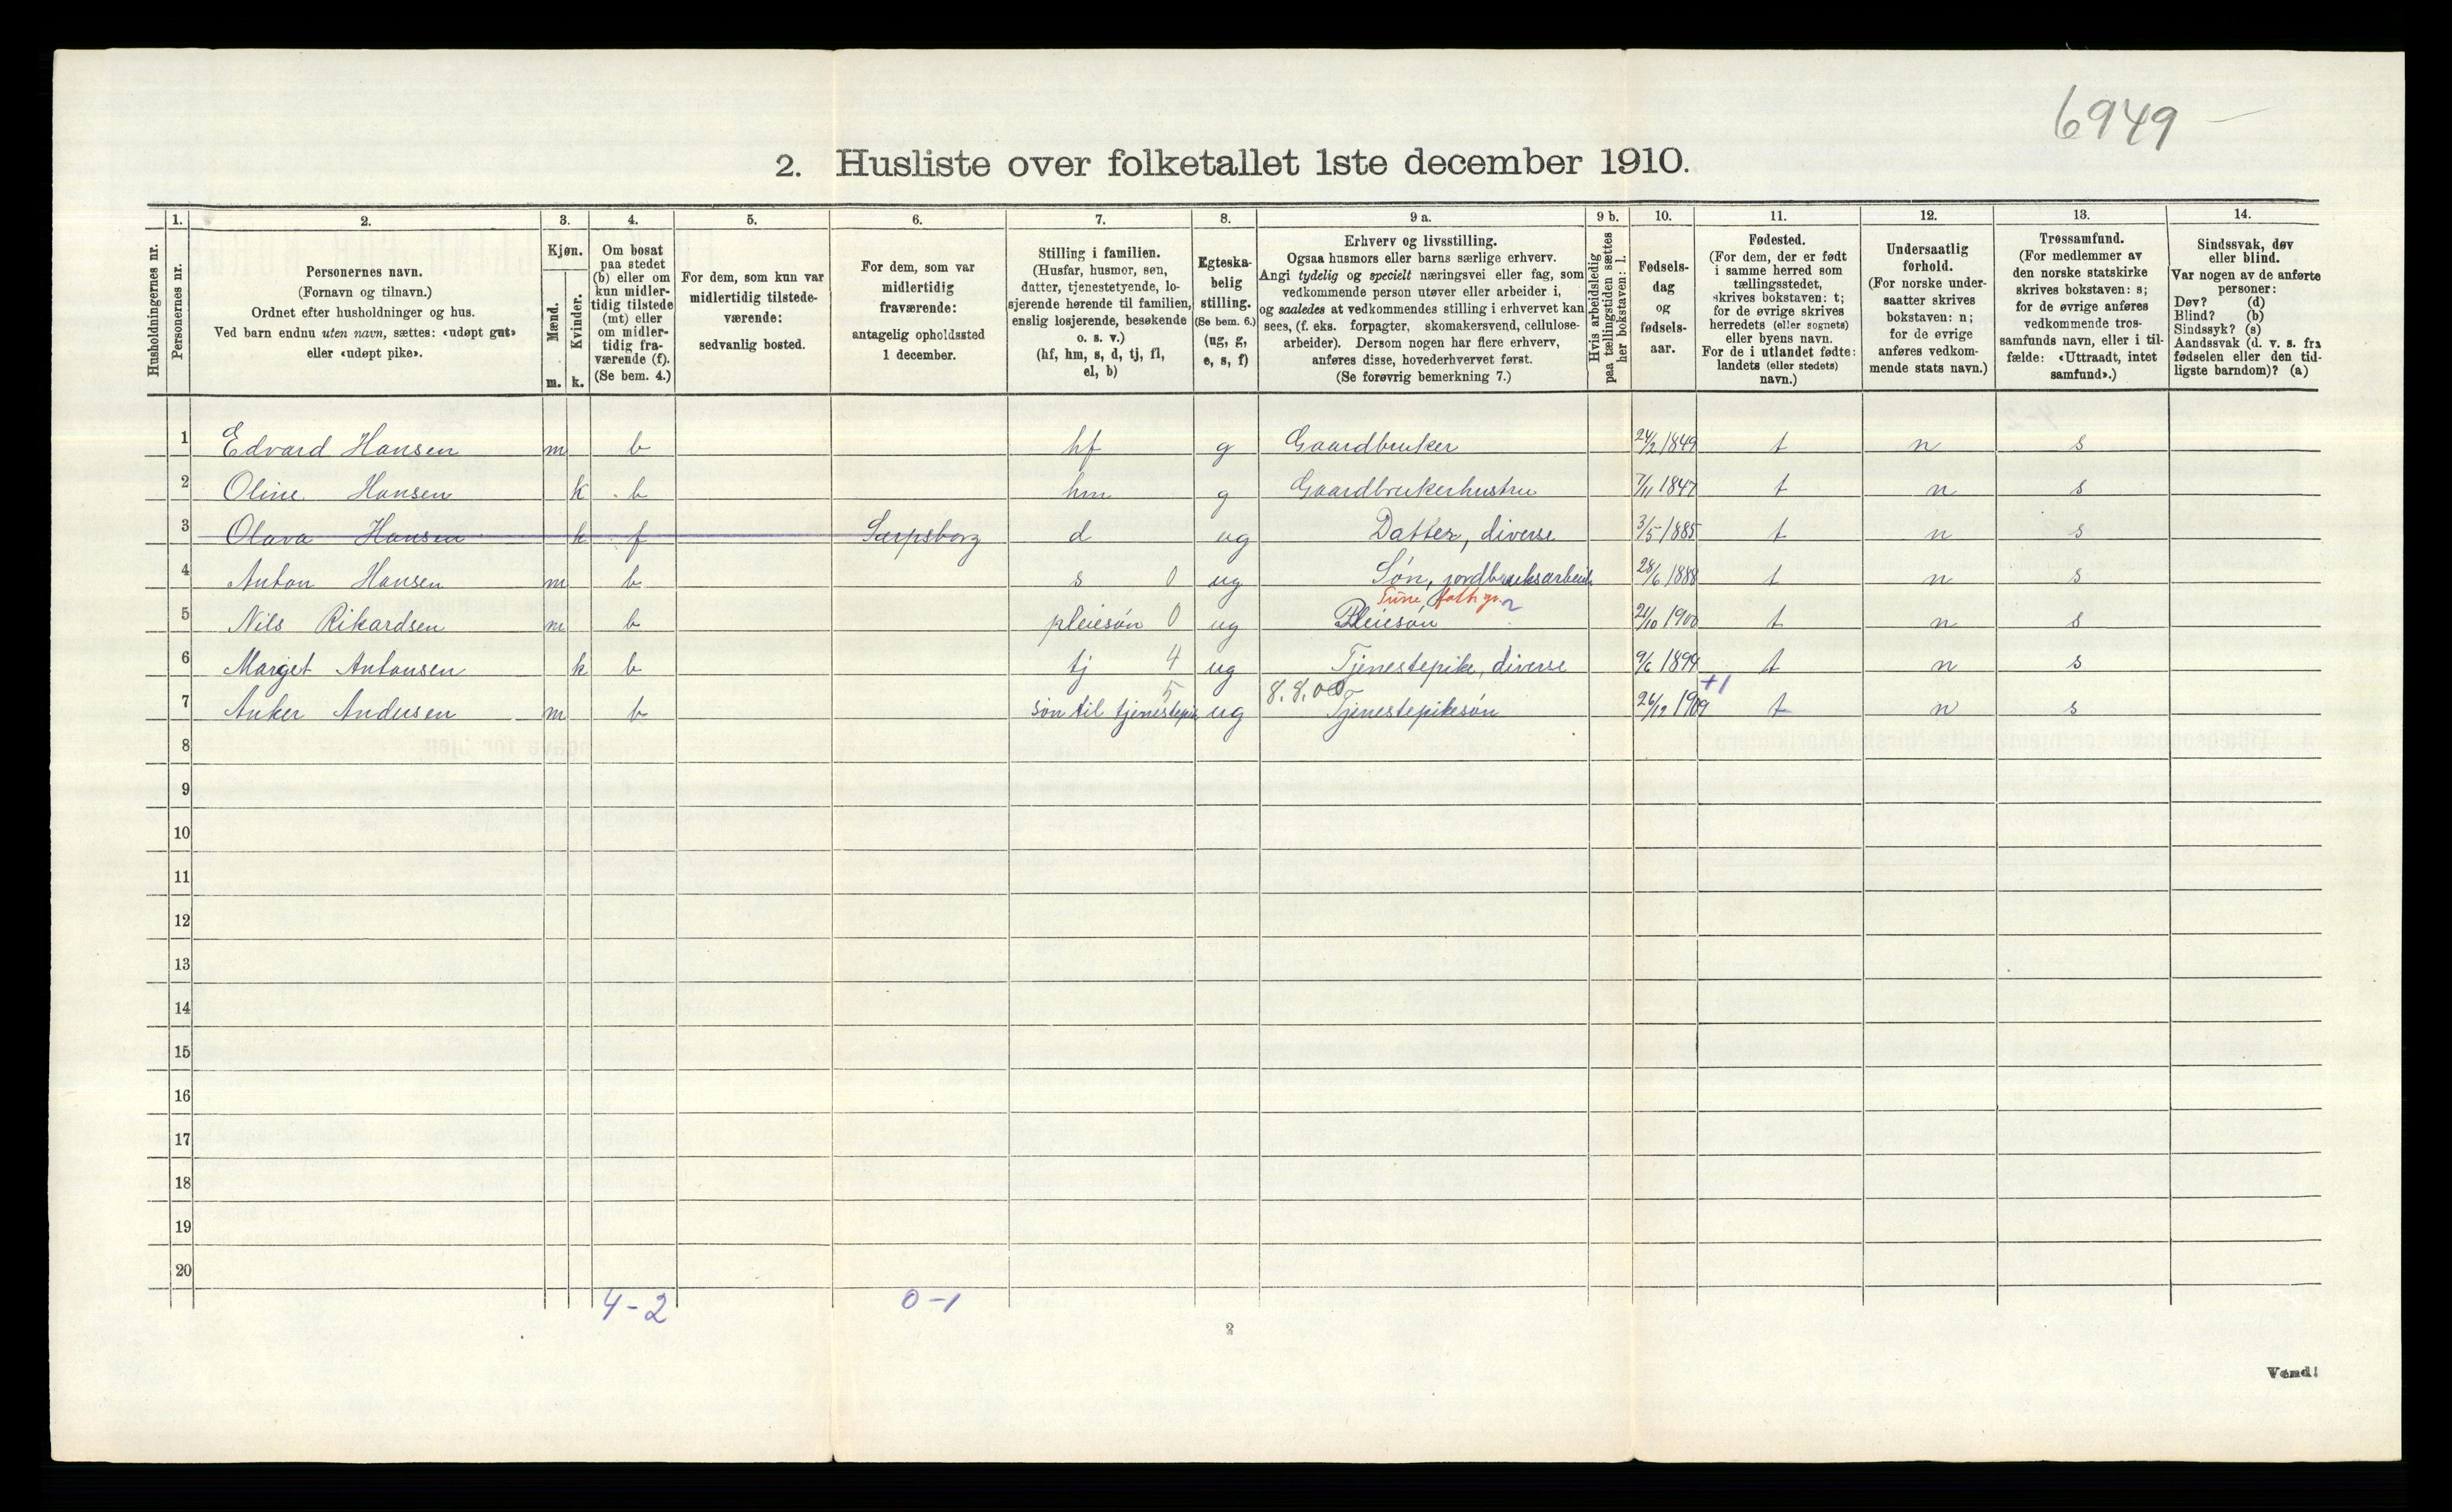 6949 –
2. Husliste over folketallet 1ste december 1910.
1. 2. 3. 4. 5. 6. 7. 8. 9 a. 9 b. 10. 11. 12. 13. 14.
Husholdningernes nr.
Personernes nr.
Personernes navn.
(Fornavn og tilnavn.)
Ordnet efter husholdninger og hus.
Ved barn endnu uten navn, sættes: «udøpt gut»
eller «udøpt pike».
Kjøn.
Mænd.
Kvinder.
m. k.
Om bosat
paa stedet
(b) eller om
kun midler-
tidig tilstede
(mt) eller
om midler-
tidig fra-
værende (f).
(Se bem. 4.)
For dem, som kun var
midlertidig tilstede-
værende:
sedvanlig bosted.
For dem, som var
midlertidig
fraværende:
antagelig opholdssted
1 december.
Stilling i familien.
(Husfar, husmor, søn,
datter, tjenestetyende, lo-
sjerende hørende til familien,
enslig losjerende, besøkende
o. s. v.)
(hf, hm, s, d, tj, fl,
el, b)
Egteska-
belig
stilling.
(Se bem. 6.)
(ug, g,
e, s, f)
Erhverv og livsstilling.
Ogsaa husmors eller barns særlige erhverv.
Angi tydelig og specielt næringsvei eller fag, som
vedkommende person utøver eller arbeider i,
og saaledes at vedkommendes stilling i erhvervet kan
sees, (f. eks. forpagter, skomakersvend, cellulose-
arbeider). Dersom nogen har flere erhverv,
anføres disse, hovederhvervet først.
(Se forøvrig bemerkning 7.)
Hvis arbeidsledig
paa tællingstiden sættes
her bokstaven: l.
Fødsels-
dag
og
fødsels-
aar.
Fødested.
(For dem, der er født
i samme herred som
tællingsstedet,
skrives bokstaven: t;
for de øvrige skrives
herredets (eller sognets)
eller byens navn.
For de i utlandet fødte:
landets (eller stedets)
navn.)
Undersaatlig
forhold.
(For norske under-
saatter skrives
bokstaven: n;
for de øvrige
anføres vedkom-
mende stats navn.)
Trossamfund.
(For medlemmer av
den norske statskirke
skrives bokstaven: s;
for de øvrige anføres
vedkommende tros-
samfunds navn, eller i til-
fælde: «Uttraadt, intet
samfund».)
Sindssvak, døv
eller blind.
Var nogen av de anførte
personer:
Døv? (d)
Blind? (b)
Sindssyk? (s)
Aandssvak (d. v. s. fra
fødselen eller den tid-
ligste barndom)? (a)
1 Edvard Hansen m b hf g Gaardbruker 24/2 1849 t n s
2 Oline Hansen k b hm g Gaardbrukerhustru 7/11 1847 t n s
3 Olava Hansen k f Sarpsborg d ug Datter, diverse 3/5 1885 t n s
4 Anton Hansen m b s 0 ug Søn, jordbruksarbeid. 28/6 1888 t n s
Tune
5 Nils Rikardsen m b pleiesøn 0 ug Pleiesøn 21/10 1900 t n s
6 Marget Antonsen k b tj 4 ug Tjenestepike, diverse 9/6 1894 t n s
5 8.8.00 +1
7 Anker Andersen m b søn til tjenestepik ug Tjenestepikesøn 26/12 1909 t n s
8
9
10
11
12
13
14
15
16
17
18
19
20
4-2 0-1
2
Vend!